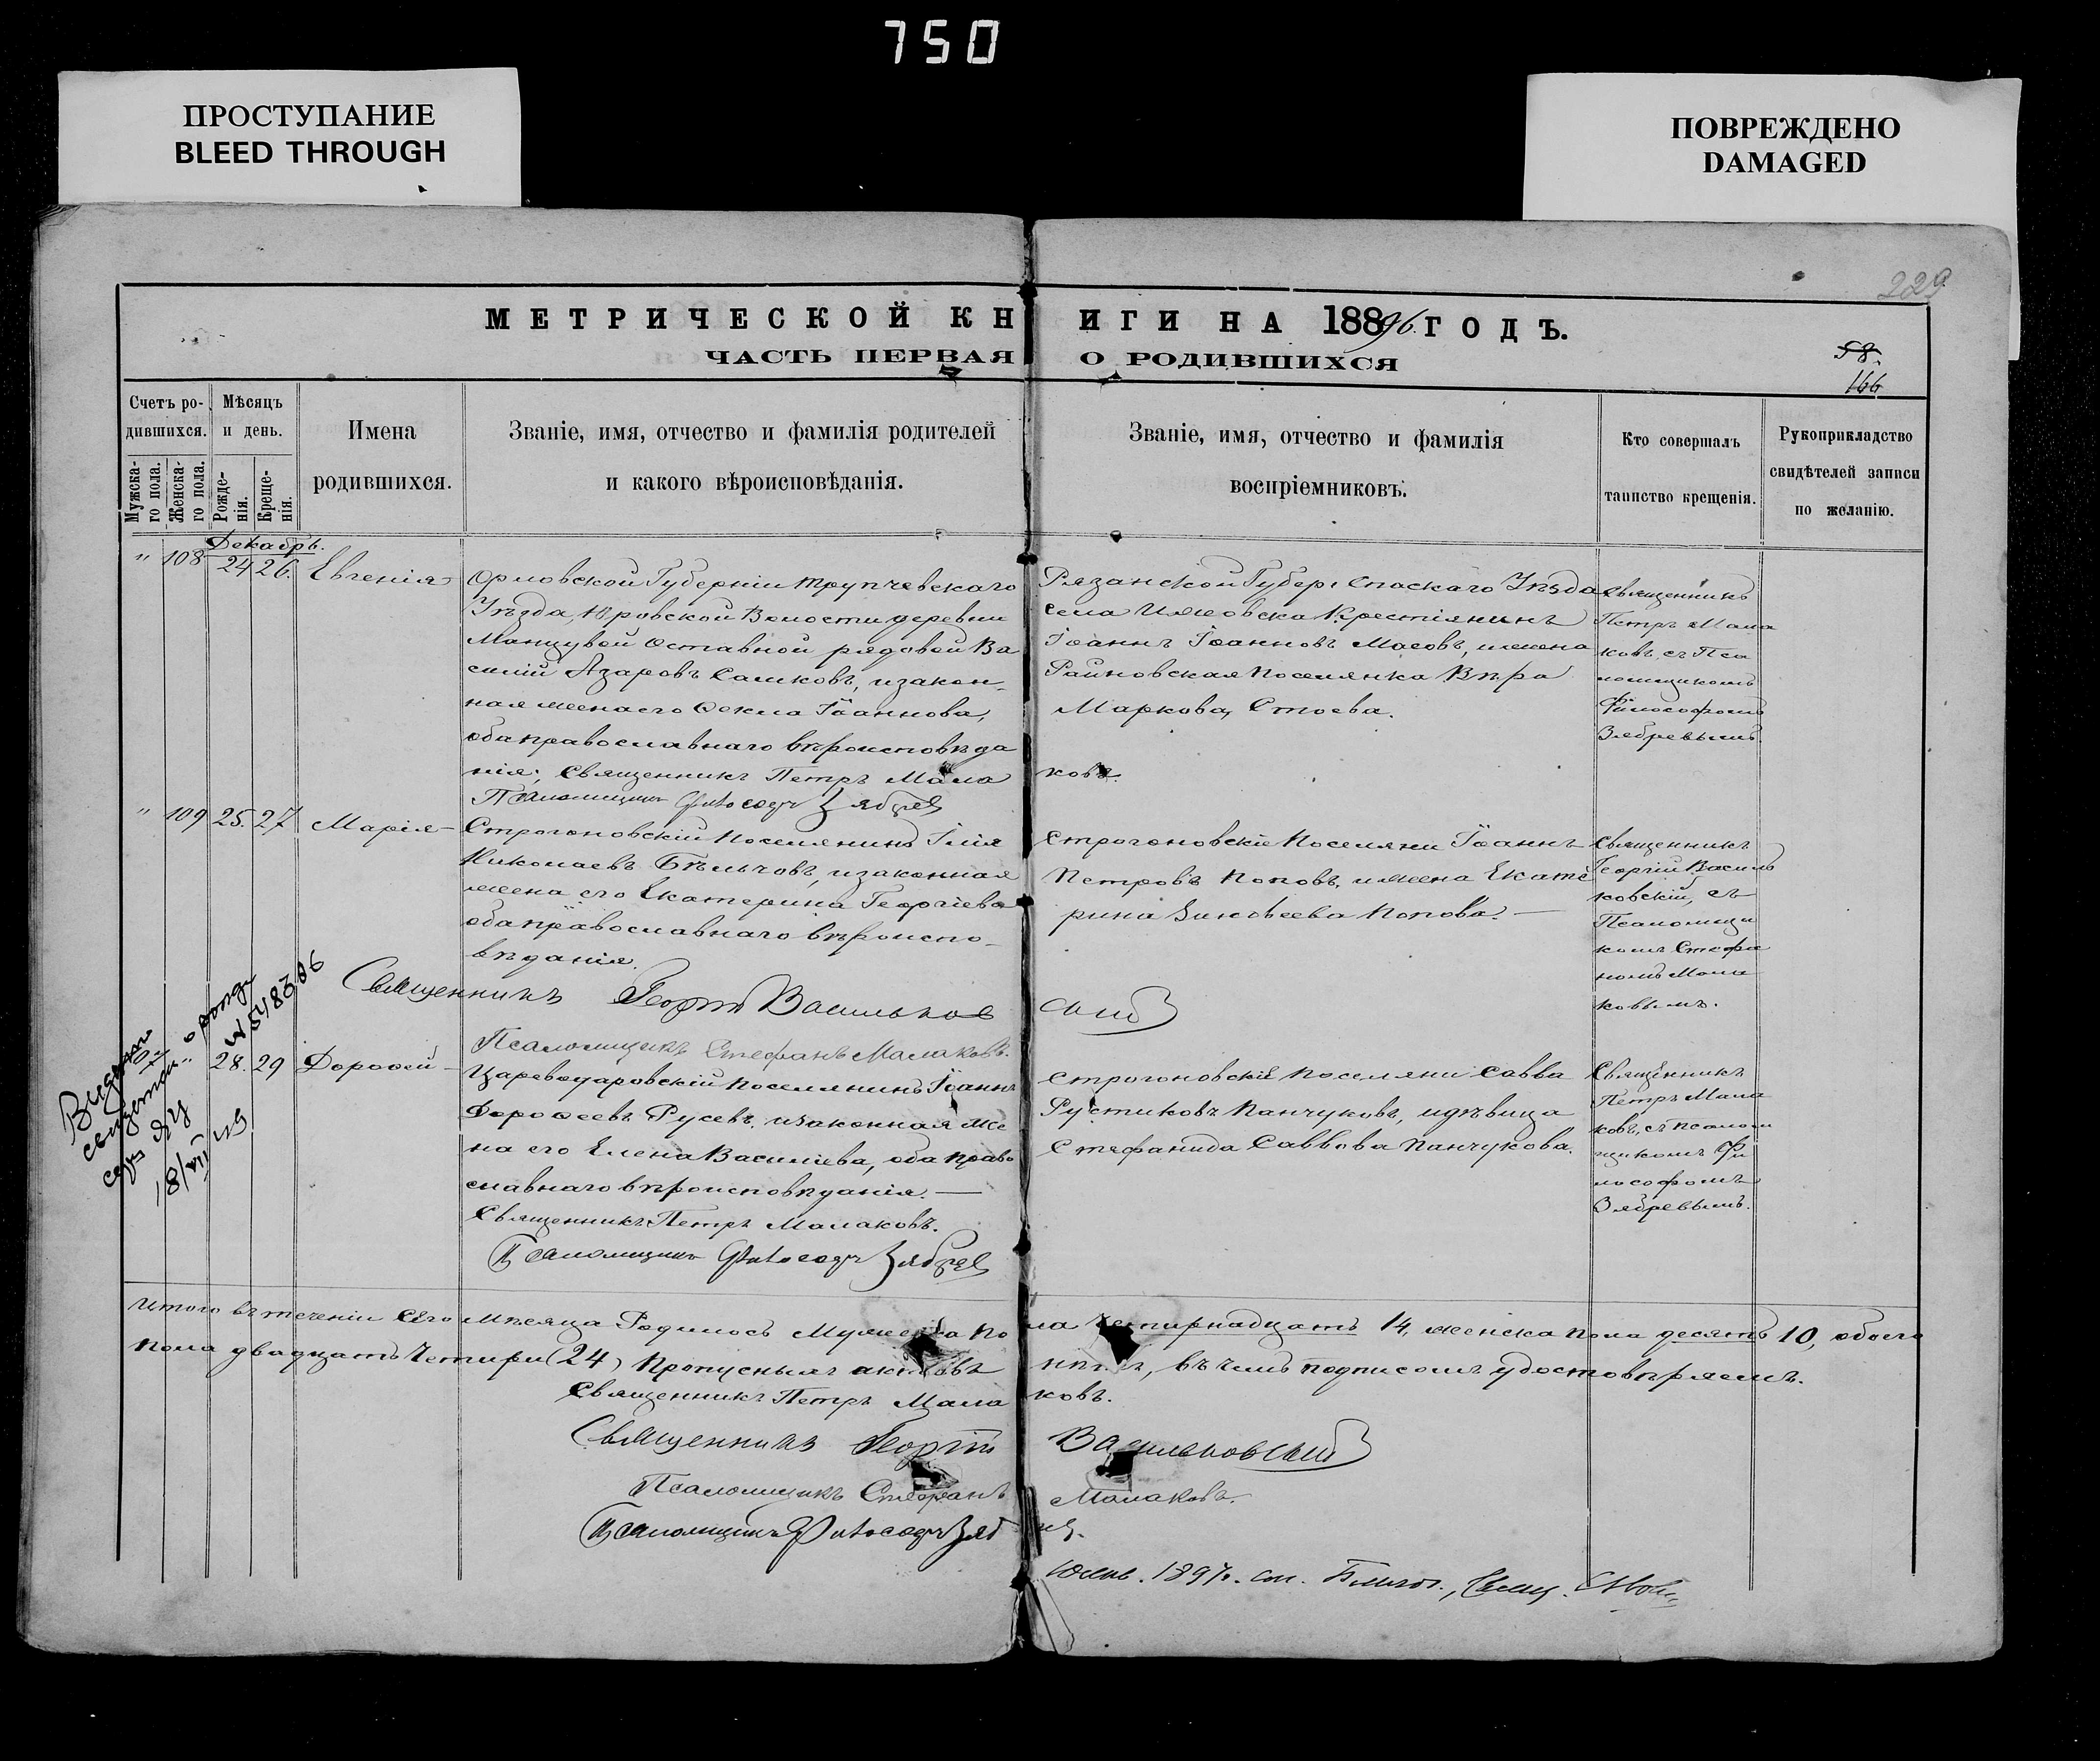 750
ПРОСТУПАНИЕ
BLEED THROUGH
ПОВРЕЖДЕНО
DAMAGED
229
МЕТРИЧЕСКОЙ КНИГИ НА 1896 ГОДЪ.
ЧАСТЬ ПЕРВАЯ О РОДИВШИХСЯ
58.
166
Счетъ ро-
дившихся.
Мужска-
го пола.
Женска-
го пола.
Мѣсяцъ
и день.
Рожде-
нія.
Креще-
нія.
Имена
родившихся.
Званіе, имя, отчество и фамилія родителей
и какого вѣроисповѣданія.
Званіе, имя, отчество и фамилія
воспріемниковъ.
Кто совершалъ
таинство крещенія.
Рукоприкладство
свидѣтелей записи
по желанію.
Декабрь.
" 108 24 26. Евгенія
Орловской Губерніи Трупчевскаго
Уѣзда, Юровской Волости деревни
Манцувой Оставной рядовой Ва
силій Азаровъ Сашковъ, изакон-
ная жена его Ѳекла Іоаннова,
оба православнаго вѣроисповѣда
нія; Священникъ Петръ Мала
ковъ.
Псаломщикъ Философъ Зябрев
Рязанской Губер. Спаскаго Уѣзда
села Ижевска Крестіянинъ
Іоаннъ Іоанновъ Масовъ, ижена
Райновская Поселянка Вѣра
Маркова, Стоева.
Священникъ
Петръ Мала
ковъ, съ Пса
ломщикомъ
Философомъ
Зябревымъ.
" 109 25. 27 Марія
Строгоновскій Поселянинъ Илія
Николаевъ Бѣльчовъ, изаконная
жена его Екатерина Георгіева
оба православнаго вѣроиспо-
вѣданія.
Священникъ Георгій Васильков
скій
Псаломщикъ Стефанъ Малаковъ.
Строгоновскіе Поселяни Іоаннъ
Петровъ Поповъ, ижена Екате
рина Зиновьева Попова.
Священникъ
Георгій Василь
ковскій, съ
Псаломщи
комъ Стефа
номъ Мала
ковымъ.
28. 29 Дороѳей
Цареводаровскій Поселянинъ Іоаннъ
Дороѳеевъ Русевъ, изаконная же
на его Елена Василіева, оба право
славнаго вѣроисповѣданія.
Священникъ Петръ Малаковъ.
Псаломщикъ Философъ Зябрев
Строгоновскіе Поселяни Савва
Рустиковъ Панчуковъ, идѣвица
Стефанида Саввова Панчукова.
Священникъ
Петръ Мала
ковъ, съ Псалом
щикомъ Фи
лософомъ
Зябревымъ.
Итого въ теченіи сего мѣсяца Родилось Мужеска пола четирнадцать 14, женска пола десять 10, обоего
пола двадцать Четири (24) Пропускныхъ актовъ нѣтъ, въ чемъ подписомъ удостовѣряемъ.
Священникъ Петръ Малаковъ.
Священникъ Георгій Васильковскій
Псаломщикъ Стефанъ Малаковъ.
Псаломщикъ Философъ Зяб